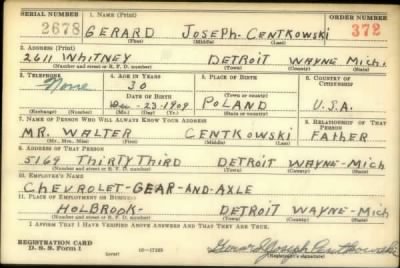 SERIAL NUMBER 1. NAME (Print) ORDER NUMBER
2678 GERARD JOSEPH CENTKOWSKI 372
(First) (Middle) (Last)
2. ADDRESS (Print)
2611 WHITNEY DETROIT WAYNE MICH.
(Number and street or R. F. D. number) (Town) (County) (State)
3. TELEPHONE 4. AGE IN YEARS 5. PLACE OF BIRTH 6. COUNTRY OF CITIZENSHIP
None 30
DATE OF BIRTH (Town or county)
Dec-23-1909 POLAND U.S.A.
(Exchange) (Number) (Mo.) (Day) (Yr.) (State or country)
7. NAME OF PERSON WHO WILL ALWAYS KNOW YOUR ADDRESS 8. RELATIONSHIP OF THAT PERSON
MR. WALTER CENTKOWSKI FATHER
(Mr., Mrs., Miss) (First) (Middle) (Last)
9. ADDRESS OF THAT PERSON
5169 THIRTY THIRD DETROIT WAYNE-MICH
(Number and street or R. F. D. number) (Town) (County) (State)
10. EMPLOYER'S NAME
CHEVROLET-GEAR-AND-AXLE
11. PLACE OF EMPLOYMENT OR BUSINESS
HOLBROOK- DETROIT WAYNE-MICH
(Number and street or R. F. D. number) (Town) (County) (State)
I AFFIRM THAT I HAVE VERIFIED ABOVE ANSWERS AND THAT THEY ARE TRUE.
REGISTRATION CARD
D. S. S. Form 1 Joseph Centkowski
(Registrant's signature)